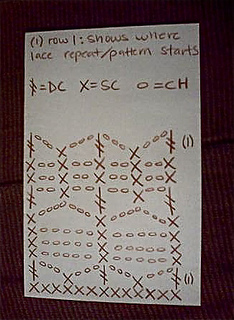 (1) row 1: shows where
lace repeat/pattern starts
ŧ=DC X=SC o=CH
(1)
(1)